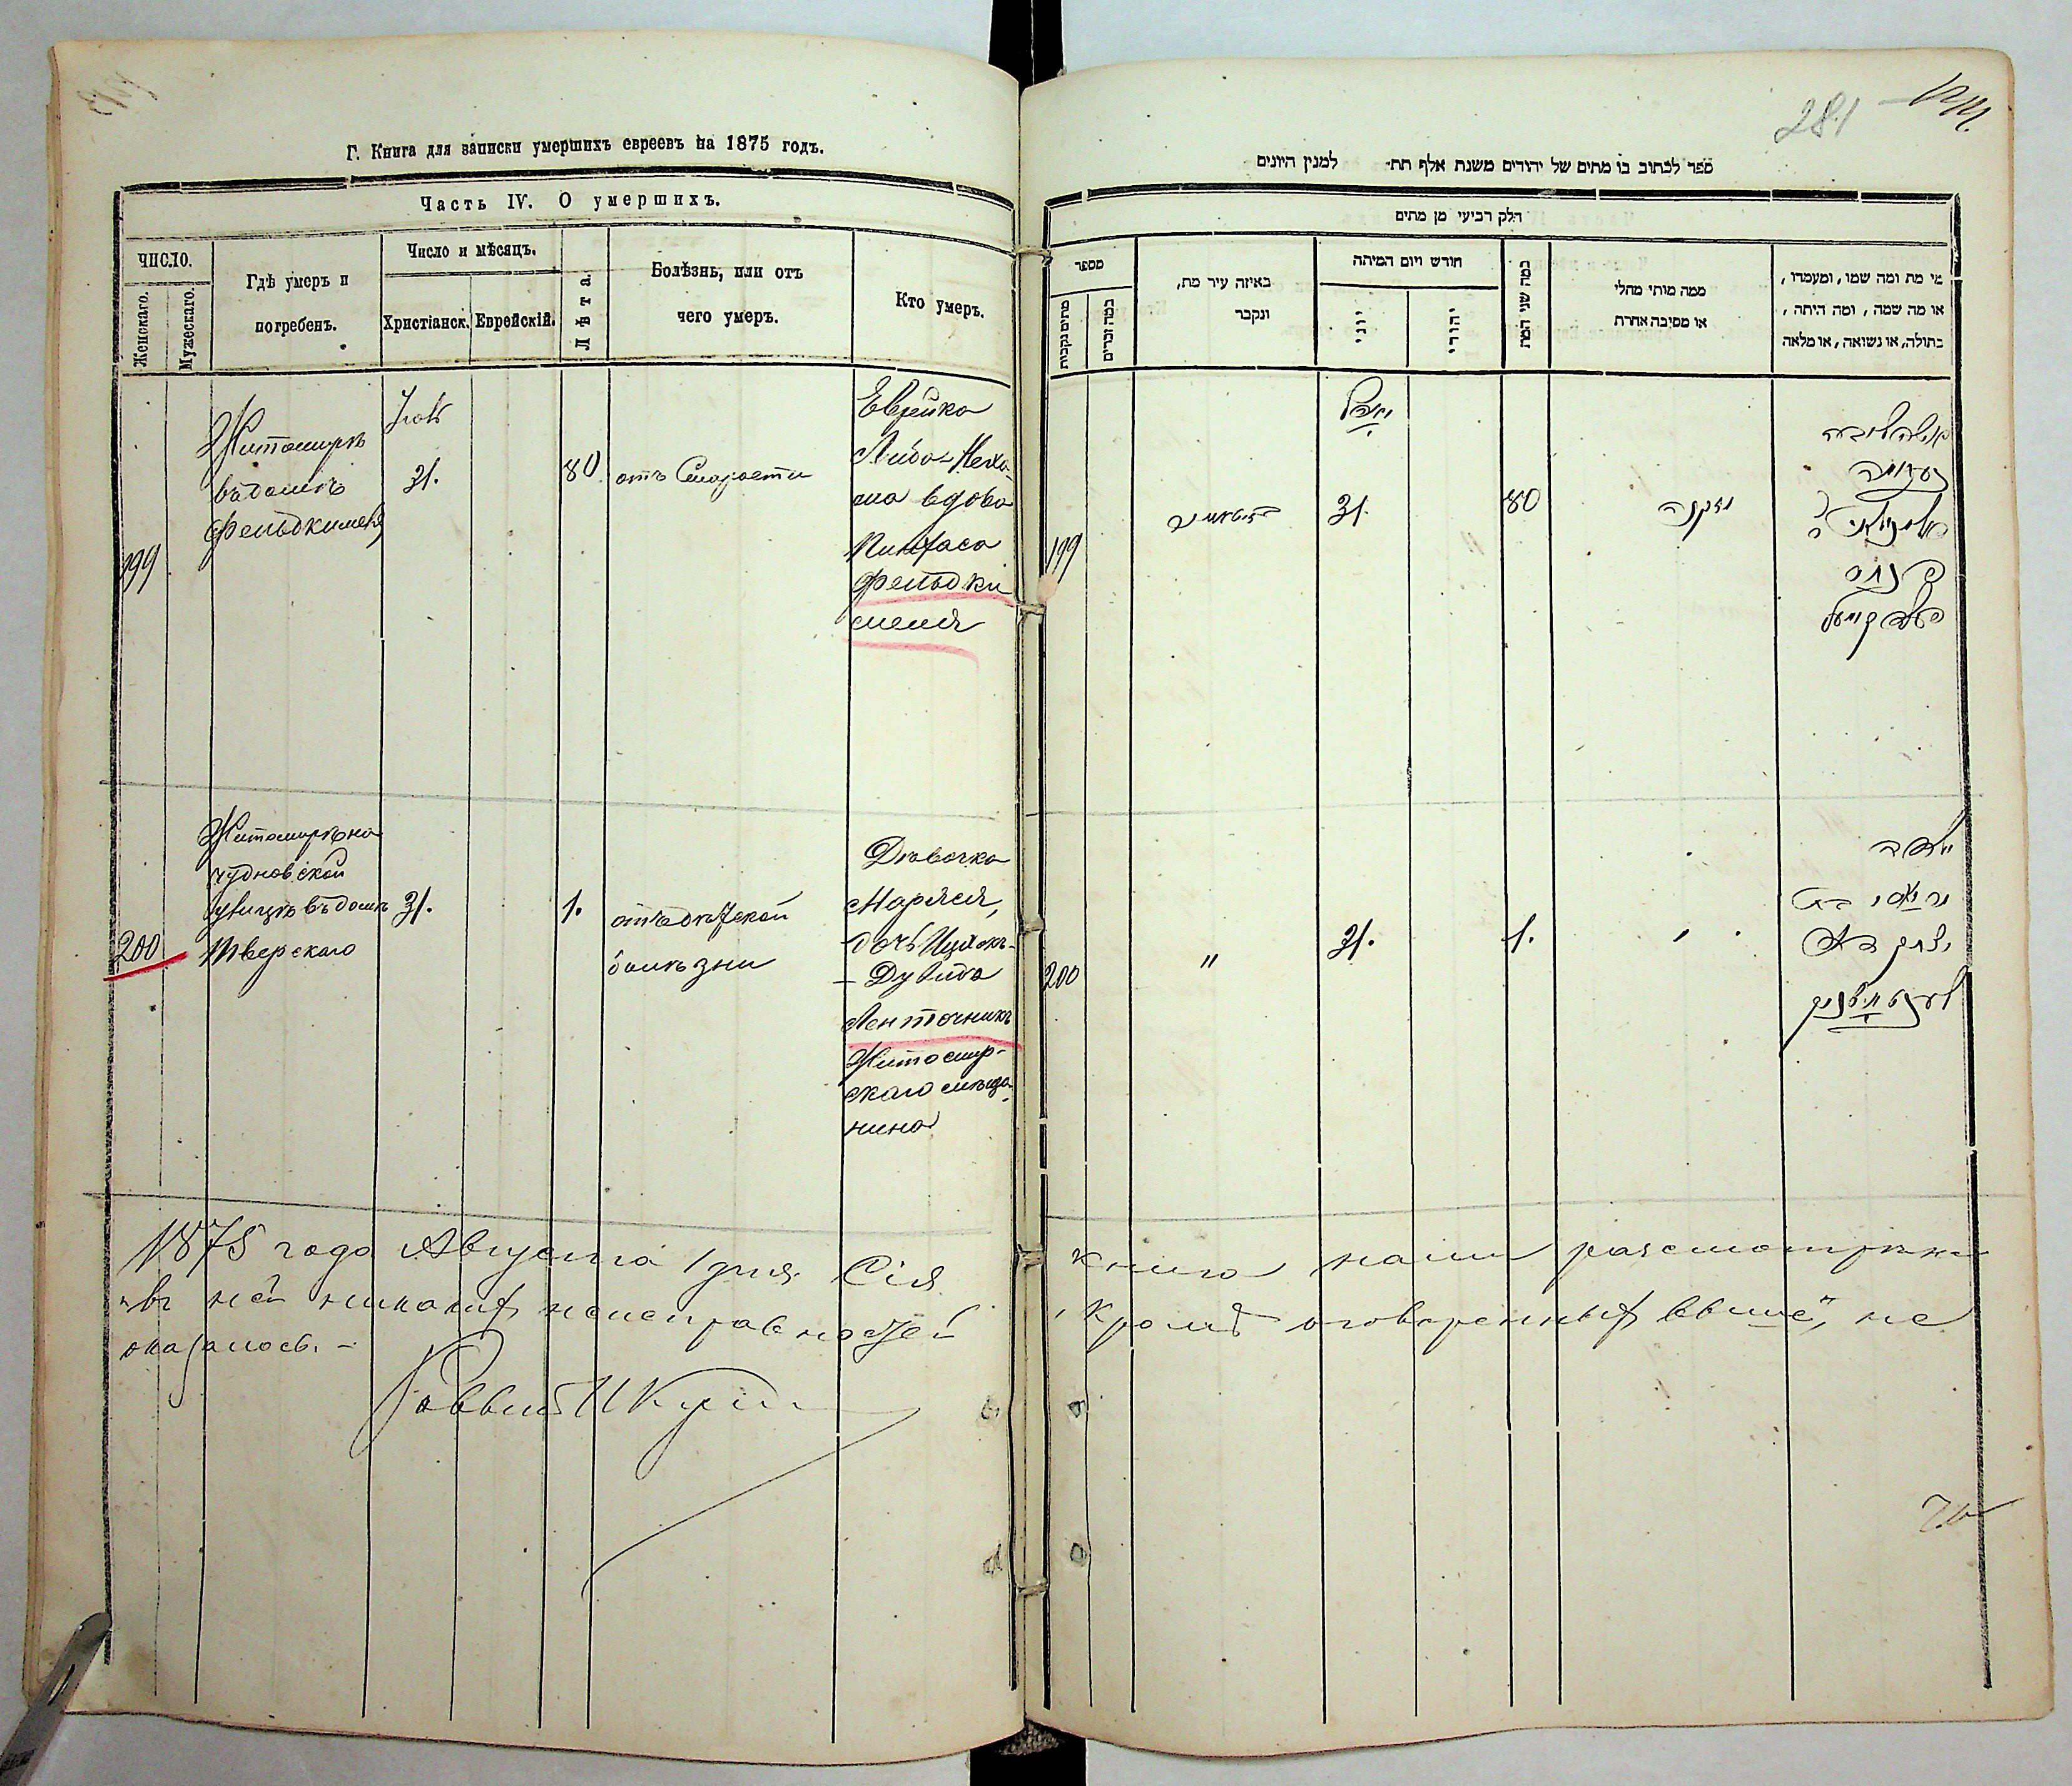 Г. Книга для записки умершихъ евреевъ на 1875 годъ.
Часть IV. О умершихъ.
ЧИСЛО.
Женскаго.
Мужескаго.
Гдѣ умеръ и
погребенъ.
Число и мѣсяцъ.
Христіанск.
Еврейскій.
Лѣта.
Болѣзнь, или отъ
чего умеръ.
Кто умеръ.
199
Житомирѣ
въ домѣ
Фельдкимеля
Іюль
31.
80
отъ Старости
Еврейка
Либа-Неха
ма вдова
Пинхаса
Фельдки
меля
200
Житомирѣ на
чудновской
улицѣ въ домѣ
Тверскаго
31.
1.
отъ дѣтской
болѣзни
Дѣвочка
Маряся,
дочь Ицхокъ-
- Дувида
Ленточникъ
Житомир-
скаго мѣща-
нина
281
ספר לכתוב בו מתים של יהודים משנת אלף תת״ למנין היונים
חלק רביעי מן מתים
מספר
מתים נקבות
כמה זכרים
באיזה עיר מת,
ונקבר
חודש ויום המיתה
יוני
יהודי
כמה שני המת
ממה מותי מחלי
או מסיבה אחרת
מי מת ומה שמו, ומעמדו,
או מה שמה, ומה היתה,
בתולה, או נשואה, או מלאה
199
31.
80
מזקנה
נחמה
פנחס
פעלדקימעל
200
"
31.
1.
ילדה
יצחק דוד
לענטישניק
1875 года Августа 1 дня. Сія книга нами разсмотрѣна
и въ ней никакихъ неисправностей, кромѣ оговоренныхъ выше, не
оказалось. -
Раввинъ